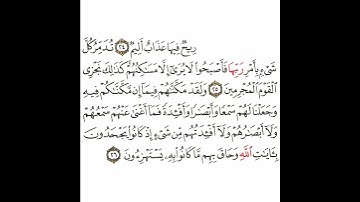 رِيحٌ فِيهَا عَذَابٌ أَلِيمٌ ٢٤ تُدَمِّرُ كُلَّ
شَىْءٍۭ بِأَمْرِ رَبِّهَا فَأَصْبَحُوا۟ لَا يُرَىٰٓ إِلَّا مَسَـٰكِنُهُمْ كَذَٰلِكَ نَجْزِى
ٱلْقَوْمَ ٱلْمُجْرِمِينَ ٢٥ وَلَقَدْ مَكَّنَّـٰهُمْ فِيمَآ إِن مَّكَّنَّـٰكُمْ فِيهِ
وَجَعَلْنَا لَهُمْ سَمْعًا وَأَبْصَـٰرًا وَأَفْـِٔدَةً فَمَآ أَغْنَىٰ عَنْهُمْ سَمْعُهُمْ
وَلَآ أَبْصَـٰرُهُمْ وَلَآ أَفْـِٔدَتُهُم مِّن شَىْءٍ إِذْ كَانُوا۟ يَجْحَدُونَ
بِـَٔايَـٰتِ ٱللَّهِ وَحَاقَ بِهِم مَّا كَانُوا۟ بِهِۦ يَسْتَهْزِءُونَ ٢٦